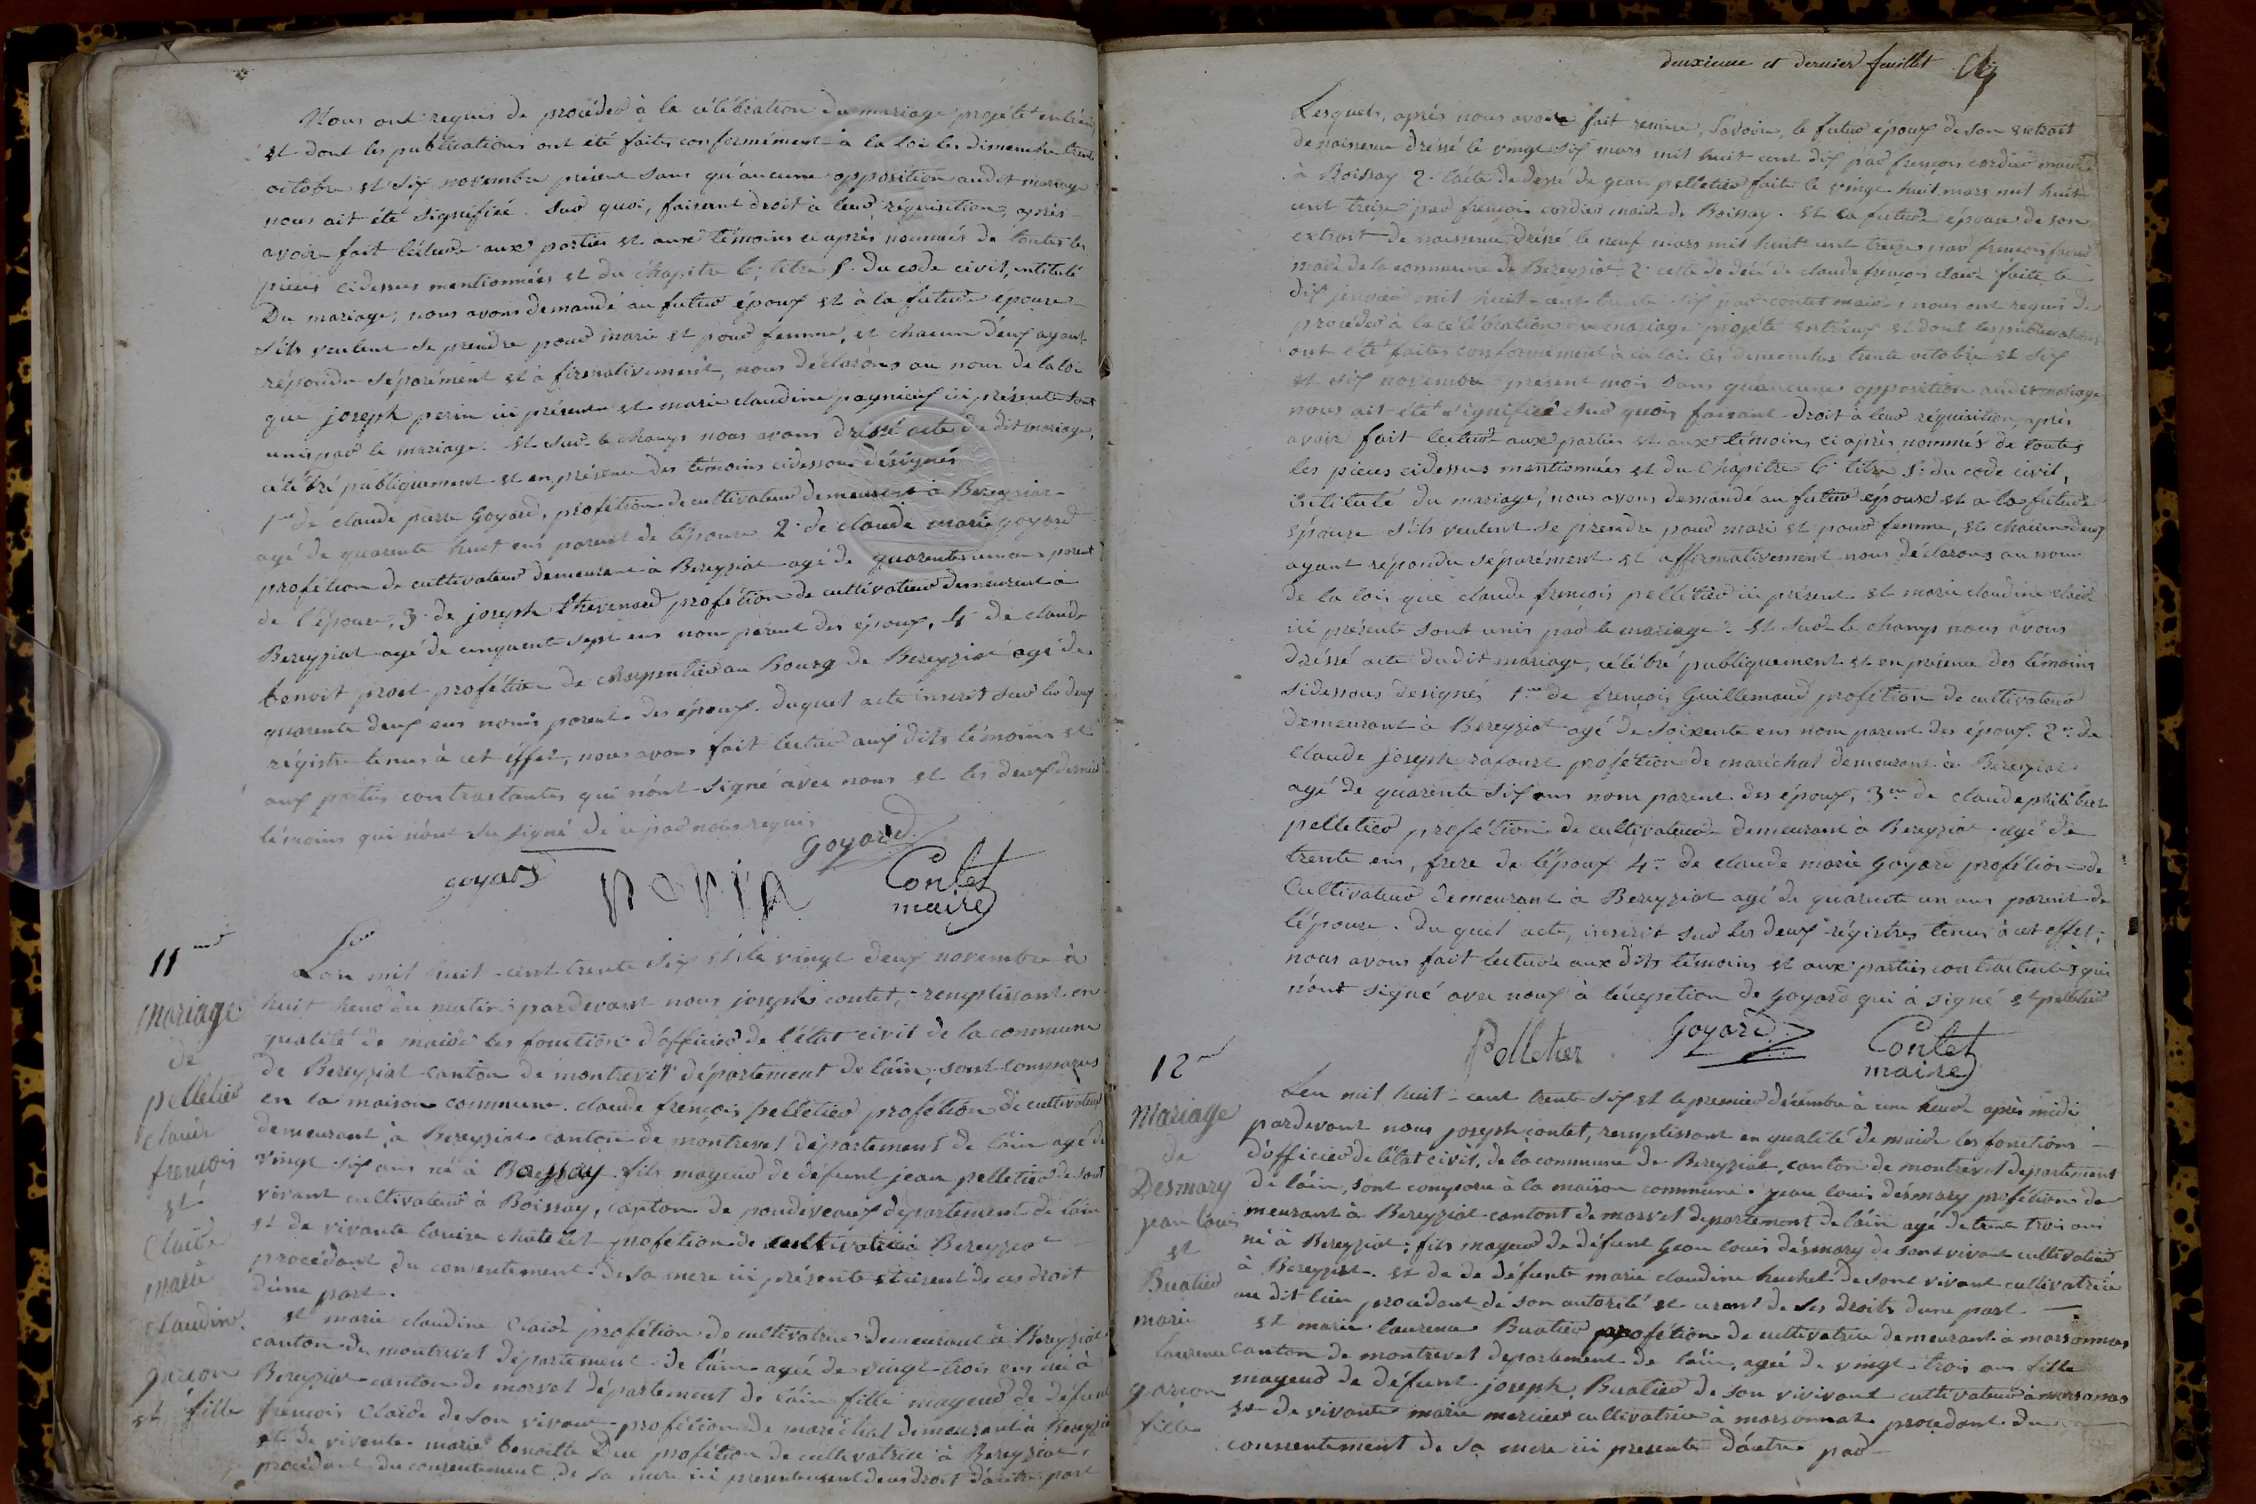 Nous ont requis de procéder à la célébration du mariage projété entr'eux
et dont les publications ont été faites conformément à la loi les dimenches trente
octobre et six novembre présent sans qu'aucune opposition audit mariage
nous ait été signifiée. Sur quoi, faisant droit à leur réquisition, après
avoir fait lecture aux parties et aux témoins ci après nommés de toutes les
pièces cidessus mentionnées et du chapitre 6, titre 5. du code civil, intitulé
Du mariage, nous avons demandé au futur époux et à la future épouse
s'ils veulent se prendre pour mari et pour femme, et chacun d'eux ayant
répondu séparément et afirmativement, nous déclarons au nom de la loi
que joseph perin ici présent et marie claudine pagnieux ici présente sont
unis par le mariage. et sur le champs nous avons dréssé acte du dit mariage,
célébré publiquement et en présence des témoins cidessous désignés
1er de claude pierre Goyard, profétion de cultivateur demeurant à Bereyziat
agé de quarente huit ens parent de l'épouse 2. de claude marie goyard
profétion de cultivateur demeurent à Bereyziat agé de quarente un ans parent
de l'épouse, 3. de joseph thevenard profétion de cultivateur demeurent à
Bereyziat agé de cinquent sept ens non parent des époux, 4. de claude
benoit prost profétion de charpentier au bourg de Bereyziat agé de
quarente deux ens nonis parent des époux. duquel acte inscrit sur les deux
régistre tenus à cet éffet, nous avons fait lecture aux dits témoins et
aux parties contractantes qui n'ont signé avec nous et les deux dernier
témoins qui n'ont su signé de ce par nous requis
goyard perin Goyard Contet
maire
11me
mariage
de
pelletier
claude
françois
et
Claide
marie
claudine.
garcon
et fille
L'an mil huit-cent trente six et le vingt deux novembre à
huit heur du matin pardevant nous joseph contet, remplissant en
qualité de maire les fonction d'officier de l'état civil de la commune
de Bereyziat canton de montrevel département de l'ain, sont comparus
en la maison commune. claude françois pelletier profétion de cultivateur
demeurant à Bereyziat canton de montrevel département de l'ain agé de
vingt six ans né à Boissay fils mageur de défunt jean pelletier de sont
vivant cultivateur à Boissay, canton de pondeveaux département de l'ain
et de vivante louise chatelet profétion de cultivatrice à Bereyziat
procédant du consentement de sa mere ici présente et ceient de ces droit
d'une part.
et marie claudine Claide profétion de cultivatrice demeurant à Bereyziat
canton de montrevel département de l'ain agée de vingt-trois ens née à
Bereyziat canton de morvel département de l'ain fille mageur de défunt
françois Claide de son vivant profétion de maréchal demeurant à Bereyziat
et de vivente marie benoitte Due profétion de cultivatrice à Bereyziat,
procédant du consentement de sa mere ici presente usent de ces droit d'autre part
deuxieme et dernier feuillet
Lesquels, après nous avoir fait remise, Savoir, le futur époux de son extrait
de naissence dréssé le vingt six mars mil huit cent dix par françois cordier maire
à Boissay 2. l'acte de décsé de jean pelletier faite le vingt huit mars mil huit
cent treize par françois cordier maire de Boissay. et la future épouse de son
extrait de naissence dréssé le neuf mars mil huit cent treize par françois
maire de la commune de Bereyziat 2. celle de décé de claude françois claide faite le
dix jenvier mil huit-cent trente six par contet maire, nous ont requis de
procéder à la célébration du mariage projété entr'eux et dont les publications
ont été faites conformément à la loi les dimenches trente octobre et six
et six novembre présent mois sans qu'aucune opposition audit mariage
nous ait été signifiée sur quoi faisant droit à leur réquisition, après
avoir fait lecture aux parties et aux témoins ci après nommés de toutes
les pièces cidessus mentionnées et du chapitre 6. titre 5. du code civil,
intitulé du mariage, nous avons demandé au futur époux et a la future
épouse s'ils veulent se prendre pour mari et pour femme, et chacun d'eux
ayant répondu séparément et affirmativement nous déclarons au nom
de la loi que claude françois pelletier ici présent et marie claudine claide
ici présente sont unis par le mariage. et sur le champs nous avons
dréssé acte dudit mariage, célébré publiquement et en présence des témoins
sidessous designés 1er de françois Guillemaud profétion de cultivateur
demeurant à Bereyziat agé de soixente ens non parent des époux. 2me de
Claude joseph rafourt profétion de maréchal demeurant à Bereyziat
agé de quarente six ans non parent des époux, 3me de claude philibert
pelletier profétion de cultivateur demeurant à Bereyziat agé de
trente ens, frere de l'époux 4me de claude marie goyard profétion de
Cultivateur demeurant à Bereyziat agé de quarente un ans parent de
l'épouse. Du quel acte, inscrit sur les deux régistres tenus à cet effet,
nous avons fait lecture aux dits témoins et aux parties contractentes qui
n'ont signé avec nous à l'écepetion de goyard qui à signé et pelletier
Pelletier Goyard Contet
maire
12me
Mariage
de
Desmary
jean louis
et
Buatier
marie
laurence
garcon
fille
L'en mil huit-cent trente six et le premier décembre à une heure après midi
pardevant nous joseph contet, remplissant en qualité de maire les fonctions
d'officier de l'état civil, de la commune de Bereyziat, canton de montrevel departement
de l'ain, sont comparu à la maison commune. jean louis désmary profétion de
meurant à Bereyziat cantont de morvel departement de l'ain agé de trent trois ans
né à Bereyziat; fils mageur de défunt jean louis désmary de sont vivant cultivateur
à Bereyziat. et de de défunte marie claudine huchet de sont vivant cultivatrice
au dit lieu procédant de son autorité et usent de ses droits d'une part.
et marie laurence Buatier profétion de cultivatrice demeurant à marsonnas
canton de montrevel departement de l'ain, agée de vingt-trois ans fille
mageur de défunt joseph Buatier de son vivivant cultivateur à marsonnas
et de vivante marie mercier cultivatrice à marsonnat procedant du
consentement de sa mere ici presente d'autre par